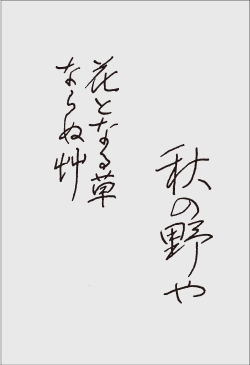 秋の野や
花となる草
ならぬ艸